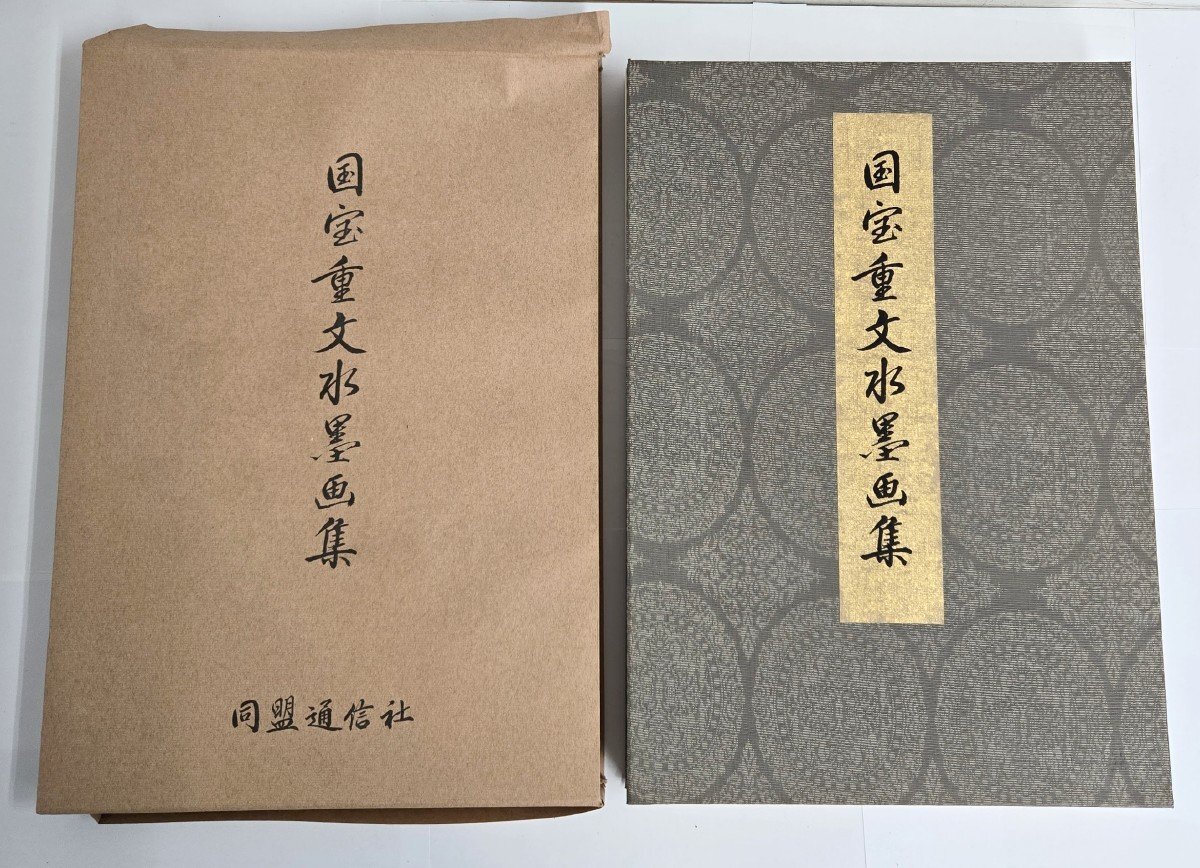 国宝重文水墨画集
同盟通信社
国宝重文水墨画集